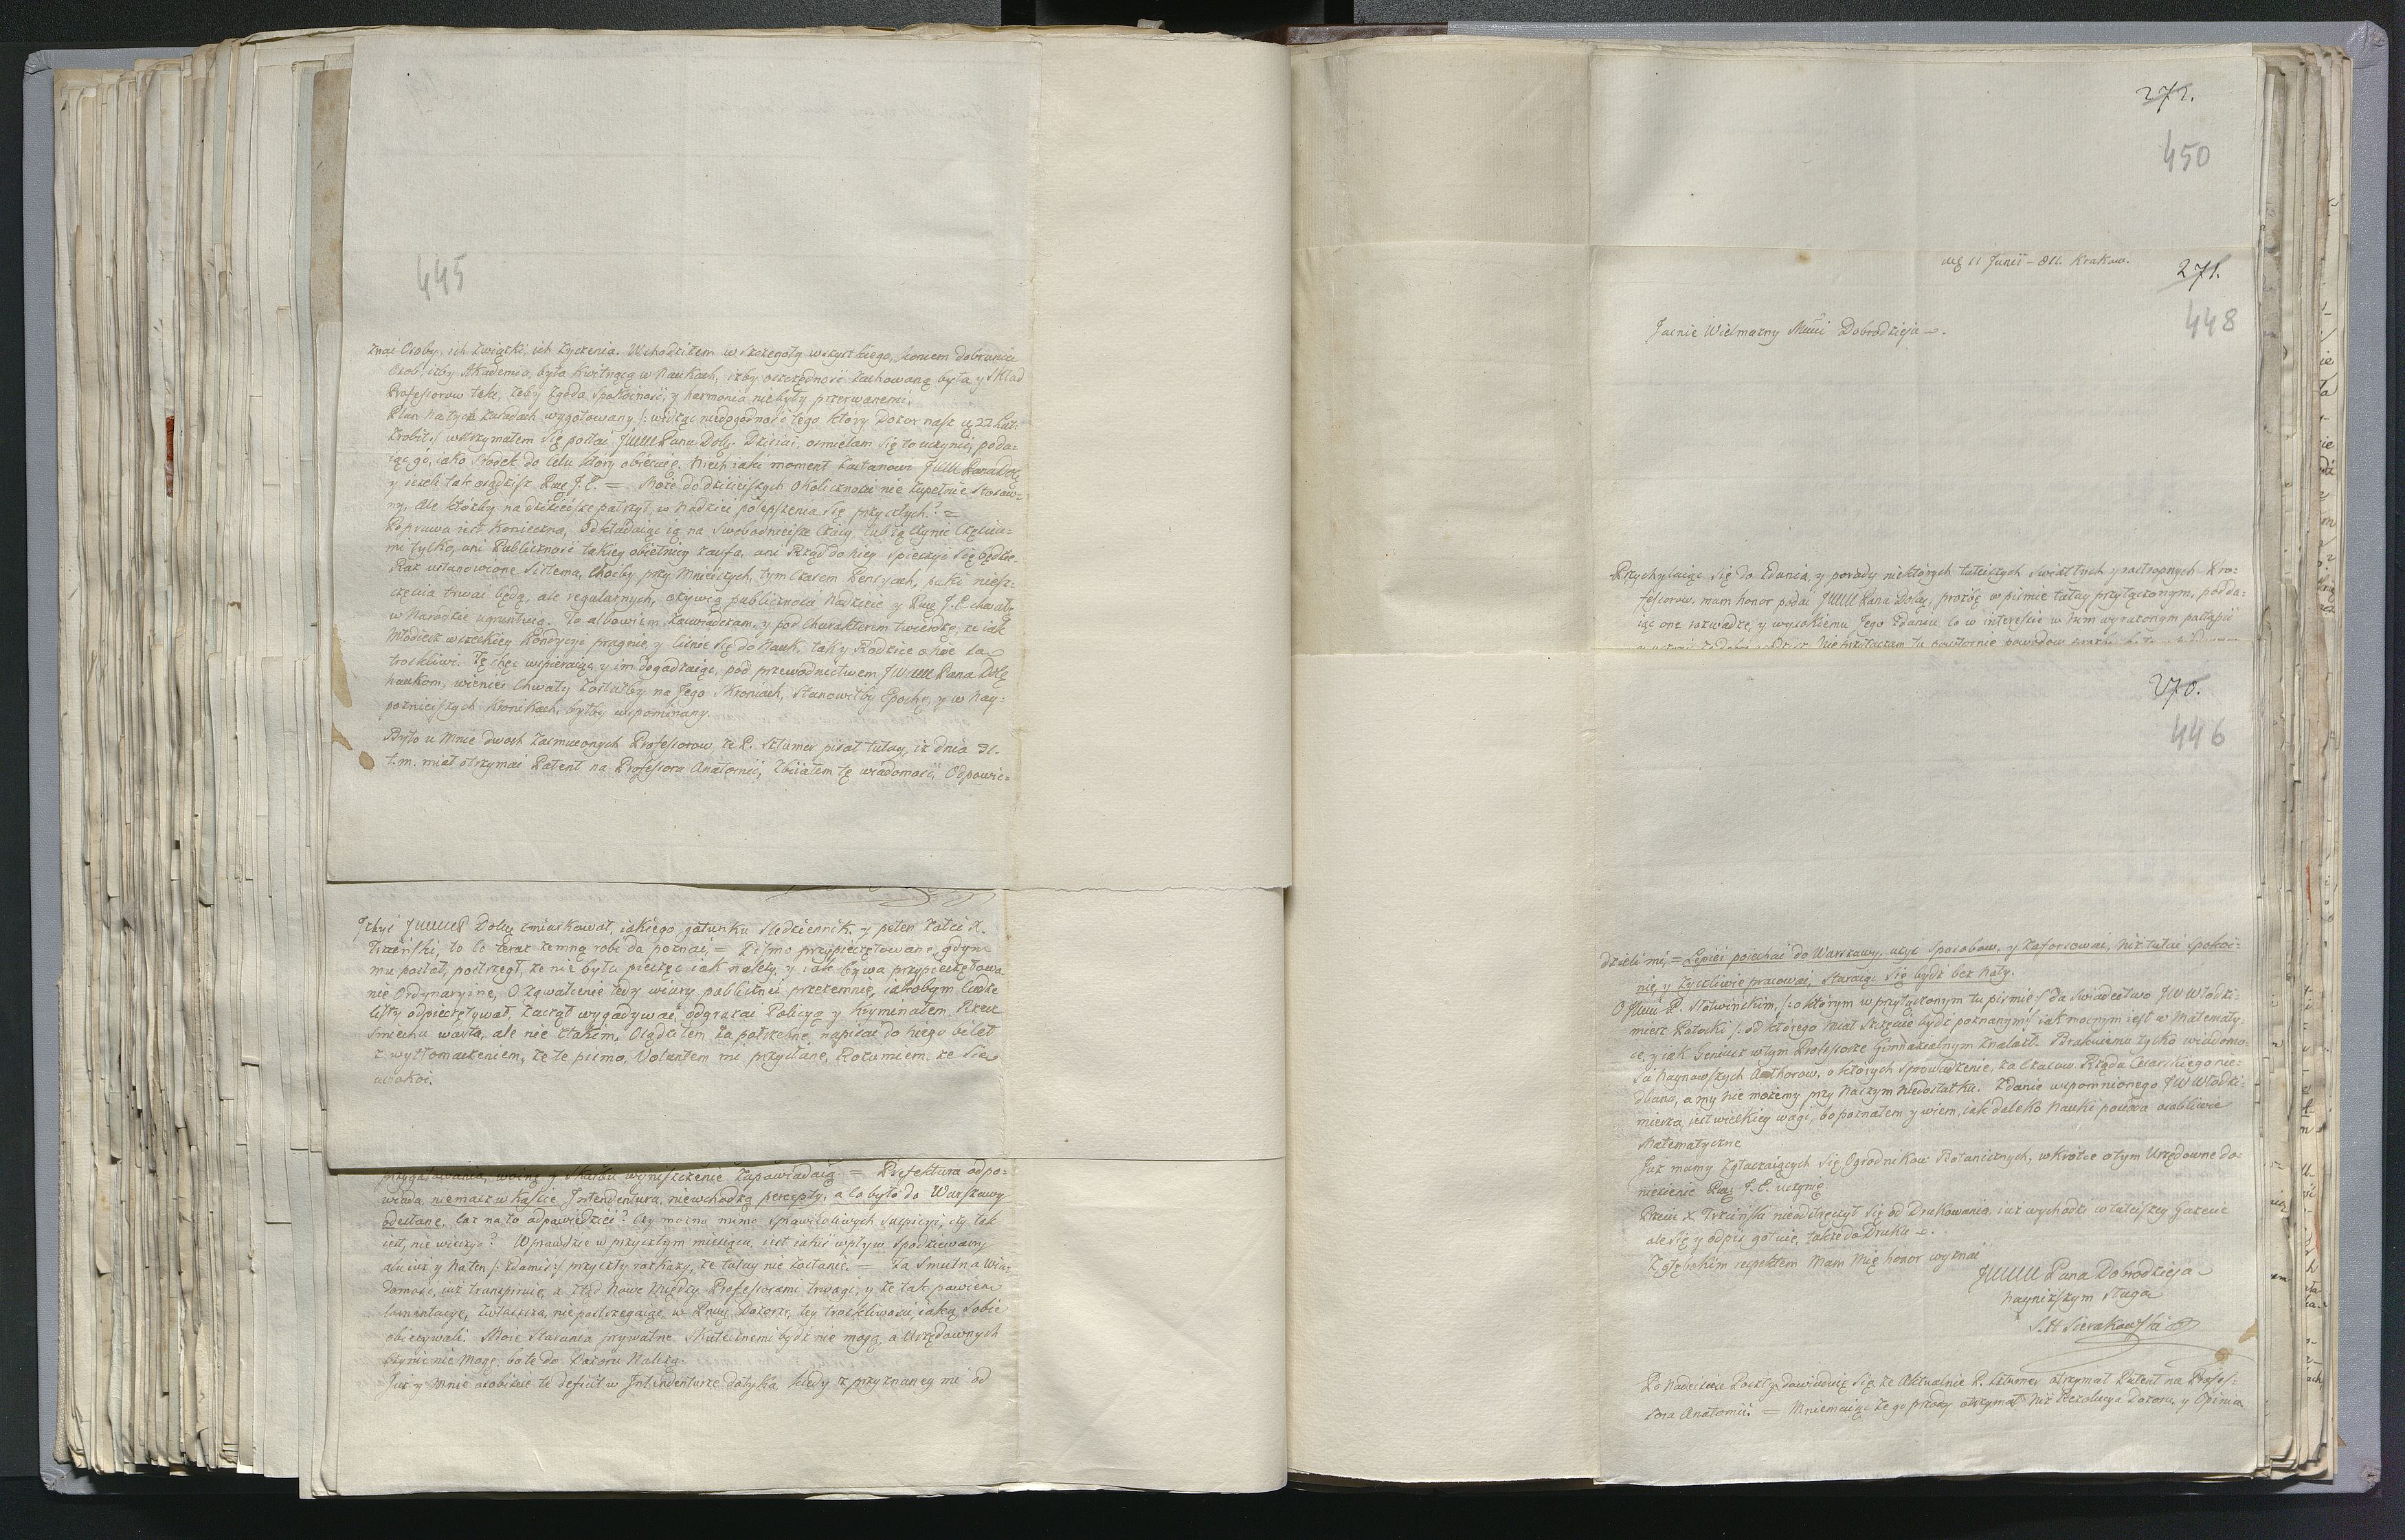 445
znać Osoby, ich związki, ich życzenia. Wchodziłem w szczegóły wszystkiego, końcem dobrania
Osob, iżby Akademia, była kwitnącą w Naukach, iżby oszczędność zachowaną była y Skład
Professorow taki, żeby zgoda Spokoiność, y harmonia niebyły przerwanemi.
Plan na tych zasadach wygotowany /: widząc niedogodność tego który Dozor nasz 22 Lut:
zrobił:/ wstrzymałem się posłać JWWPana Dobr. Dzisiai, ośmielam się to uczynić, poda-
iąc go, iako środek do Celu który obiecuię. Niech iaki moment zastanowi JWW Pana Dobr
y ieżeli tak osądzisz Exc J. C. = Może do dzisieyszych Okoliczności nie zupełnie stosow-
ny, ale któżby na dzisieysze patrzył, w Nadziei polepszenia się przyszłych? =
Poprawa iest konieczna, odkładaiąc ią na swobodnieysze Czasy lub ią Czynić Częścia-
mi tylko, ani Publiczność takiey obietnicy zaufa, ani Rząd do niey spieszyć się będzie.
Raz ustanowione Sistema, Choćby przy Mnieyszych, tym czasem Pensyach, puki niesz-
częścia trwać będą, ale regularnych, ożywią publiczności Nadzieię y Exc J. C. chwałę
w Narodzie ugruntuią. To albowiem zaświadczam, y pod Charakterem twierdzę, że iak
Młodzież wszelkiey kondycyi pragnie, y ciśnie się do Nauk, tak y Rodzice o nie są
troskliwi. Tę chęć wspieraiąc, y im dogadzaiąc, pod przewodnictwem JWWW Pana Dobr
naukom, wieniec Chwały zostałby na Jego Skroniach, Stanowiłby Epochę, y w nay-
poźnieyszych Kronikach, byłby wspominany.
Było u Mnie dwoch zasmuconych Professorow że P. Sztumer pisał tutay, iż dnia 31.
t. m. miał otrzymać Patent na Professora Anatomii, Zbiiałem tę wiadomość, Odpowie-
Iżbyś JWWWP Dobr zmiarkował, iakiego gatunku śledziennik, y pełen żółci X.
Trzciński, to co teraz zemną robi da poznać, = Pismo przypieczętowane, gdym
mu posłał, postrzegł, że nie była pieczęć iak należy, y iak bywa przypieczętowa-
nie Ordynaryine, O zgwałcenie tedy wiary publiczney przezemnie, iakobym Cudze
listy odpieczętywał, zaczął wygadywać, odgrażać Policyą y Kryminałem. Rzecz
śmiechu warta, ale nie z takim, Osądziłem za potrzebne, napisać do niego bilet
z wytłomaczeniem, że te pismo, Volantem mi przysłane, Rozumiem że się
uspokoi.
przygotowania, woinę y Skarbu wyniszczenie zapowiadaią. = Prefektura odpo-
wiada, niemasz w Kassie, Intendentura, niewchodzą percepty, a co było do Warszawy
odesłane, coż na to odpowiedzieć? Czy można mimo sprawiedliwych suspicyi, czy tak
iest, nie wierzyć? Wprawdzie w przyszłym miesiącu, iest iakiś wpływ spodziewany
ale iuż y na ten /: zda mi się:/ przyszły rozkazy, że tutay nie zostanie. = Ta smutna wia-
domość, iuż transpiruie, a ztąd nowe między Professorami trwogi, y że tak powiem
lamentacye, zwłaszcza, nie postrzegaiąc w Dozorze, tey troskliwości, iaką sobie
obiecywali. Moie Starania prywatne, Skutecznemi bydź nie mogą, a Urzędownych
czynić nie mogę, bo te do Dozoru należą.
Już y Mnie osobiście te deficit w Intendenturze dotyka, kiedy z przyznaney mi od
272.
450
dnia 11 Junii - 811. Krakow.
271.
448
Jaśnie Wielmożny Mści Dobrodzieja.
Przychylaiąc się do Zdania, y porady niektórych tuteiszych światłych y roztropnych Pro-
fessorow, mam honor podać JWWW Pana Dobr, prozbę w piśmie tutay przyłączonym, podda-
iąc one rozwadze, y wysokiemu Jego Zdaniu, co w interessie w nim wyrażonym postąpić
270.
446
dzieli mi, = Lepiei poiechać do Warszawy, użyć sposobow, y zaforsować, niż tutai spokoi-
nie, y życzliwie pracować, staraiąc się bydź bez nałę.
O JWW P. Słowińskim, /: o którym w przyłączonym tu piśmie:/ da świadectwo JW Włodzi-
mierz Potocki /: od którego miał Szczęście bydź poznanym:/ iak mocnym iest w Matematy-
ce, y iak Geniusz w tym Professorze Gimnazialnym znalazł. Brakuie mu tylko wiadomo-
ści naynowszych Authorow, o których sprowadzenie, za czasow Rządu Cesarskiego nie-
dbano, a my nie możemy przy naszym niedostatku. Zdanie wspomnionego JW Włodzi-
mierza, iest wielkiey wagi, bo poznałem y wiem, iak daleko Nauki posiada osobliwie
Matematyczne
Już mamy zgłaszaiących się Ogrodnikow Botanicznych, wkrotce o tym Urzędowne do-
niesienie Exc J. C. uczynię.
Przecie X Trzciński nieodstręczył się od Drukowania, iuż wychodzi w tuteiszey Gazecie
ale się y odpis gotuie, także do Druku.
Z głębokim respektem Mam Mię honor wyznać
JWWW Pana Dobrodzieja
Nayniższym sługą
S. H Sierakowski
Po Nadeściu Poczty, dowiaduię się że Aktualnie P. Sztumer otrzymał Patent na Profes-
sora Anatomii. = Mniemaiąc że go przody otrzymał Niż Rezolucya Dozoru, y Opinia